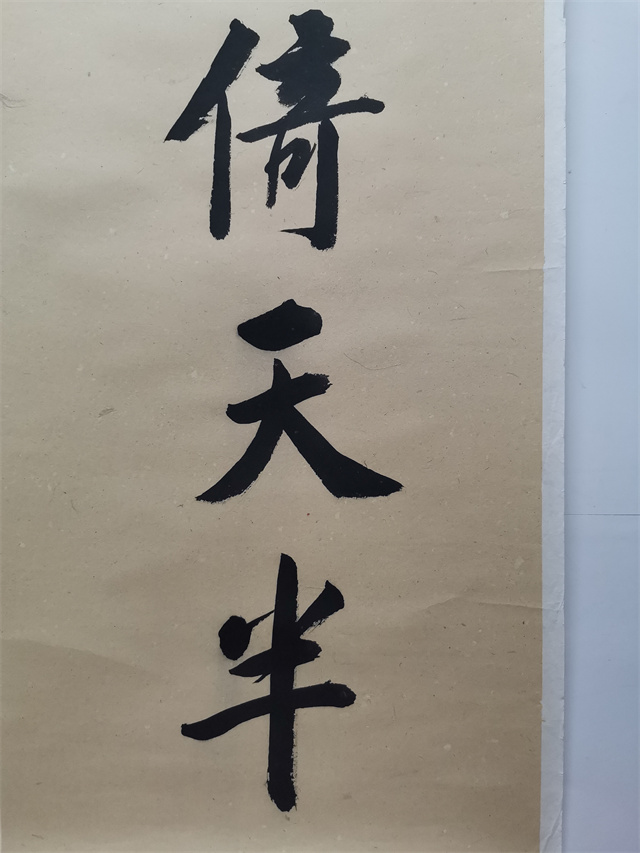 倚天半